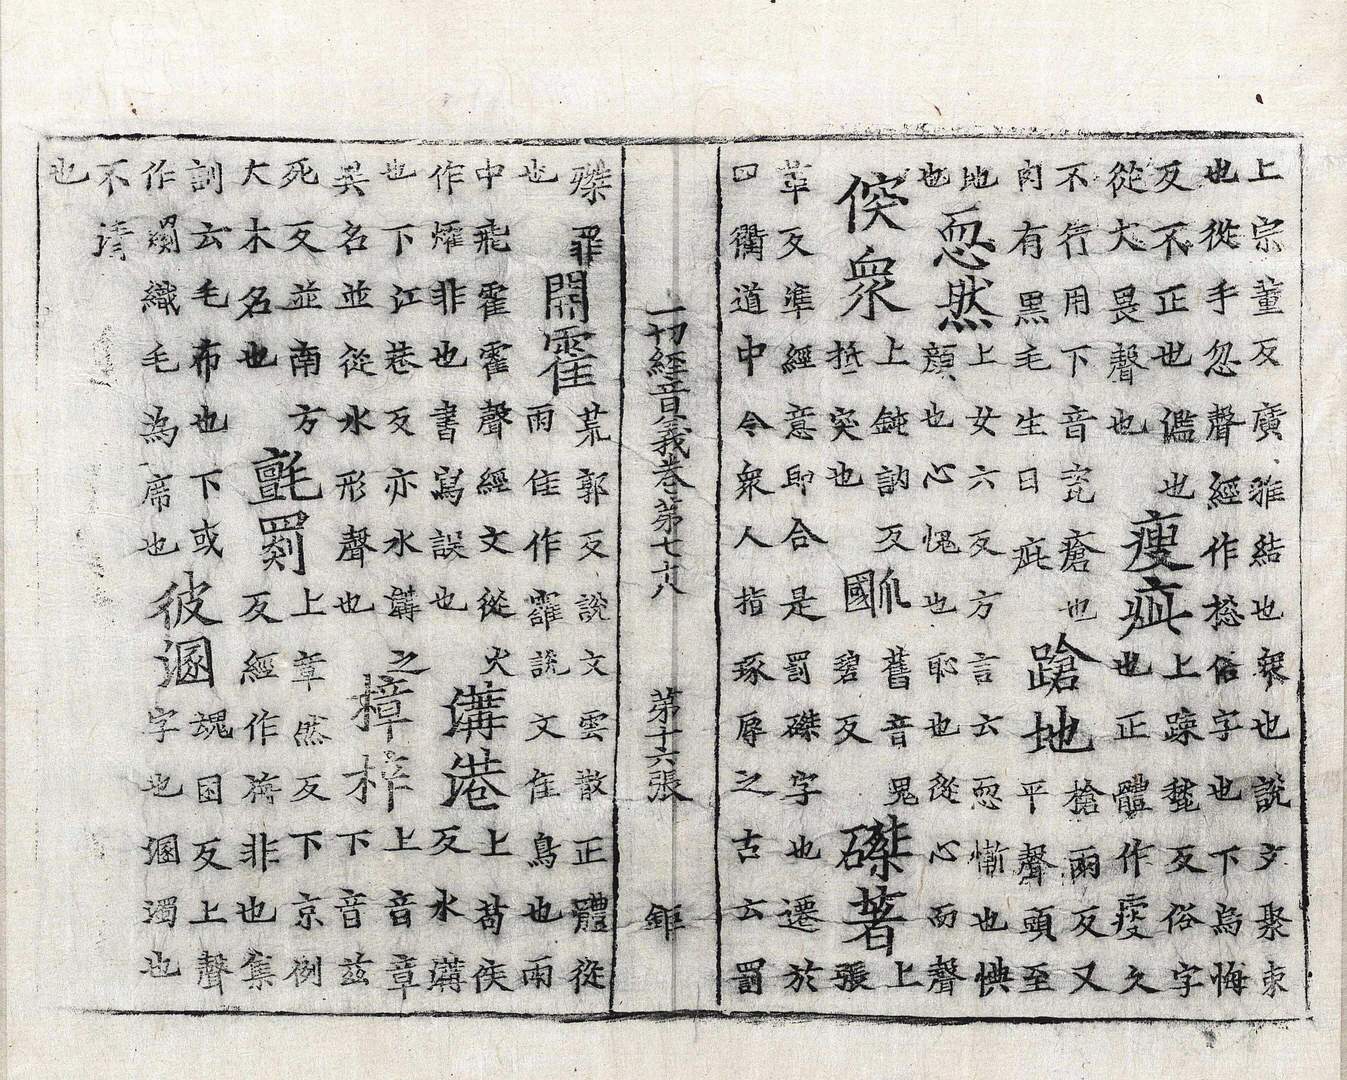 上宗董反廣雅結也衆也說文聚束
也從手忽聲經作捴俗字也下烏悔
反不正也㒈也
瘦疵
上踈皺反俗字
從犬畏聲也
也正體作瘦久
不行用下音疵瘡也
蹌地
槍兩反又
肉有黒毛生曰疵
平聲頭至
地也
恧然
上女六反方言云恧慚也㥏
也顔也心愧也耻也從心而聲
倐衆
上鈍訥反
抵突也
國爪
舊音鬼
碧反
磔著
上
張
革反準經意即合是罰磔字也遷於
四衢道中令衆人指琢辱之古云罰
磔罪
也
鬧霍
荒郭反說文雲散正體從
雨隹作靃說文隹鳥也雨
中飛霍霍聲經文從火
作㸌非也書寫誤也
溝港
上苟侯
反水溝
也下江巷反亦水溝之
吳名並從水形聲也
樟梓
上音章
下音茲
死反並南方
大木名也
氈罽
上章然反下京例
反經作㓹非也集
訓云毛布也下或
作𦇧織毛為席也
彼溷
魂困反上聲
字也溷濁也
不清
也
一切經音義卷第七十八　第十六張　鉅